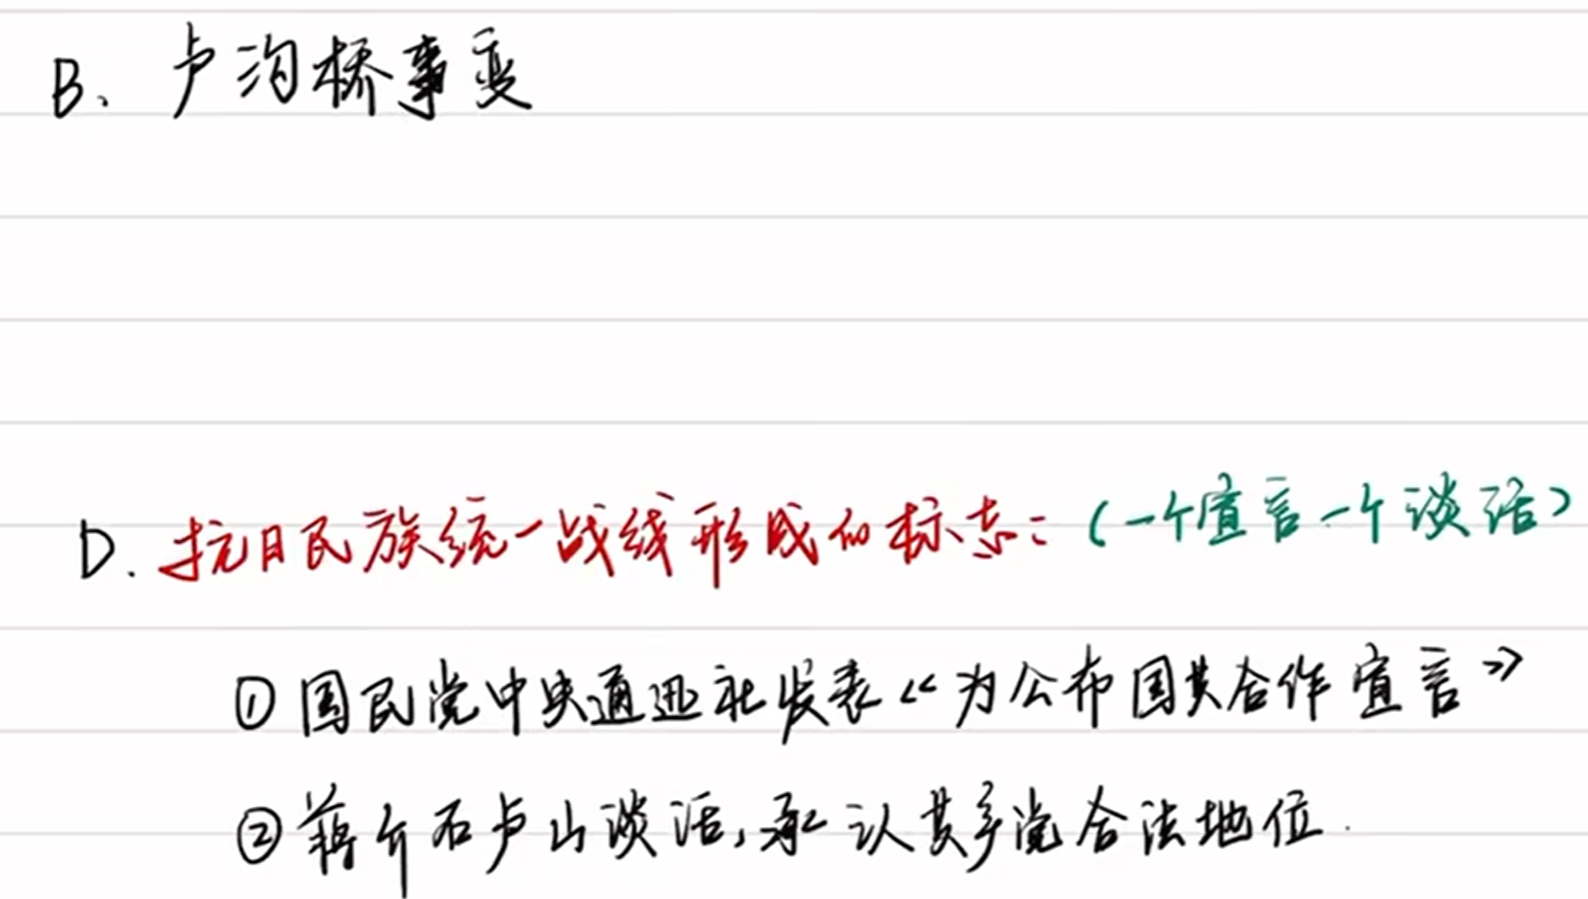 B、卢沟桥事变
D. 抗日民族统一战线形成的标志：（一个宣言一个谈话）
①国民党中央通迅社发表《为公布国共合作宣言》
②蒋介石庐山谈话,承认共产党合法地位.